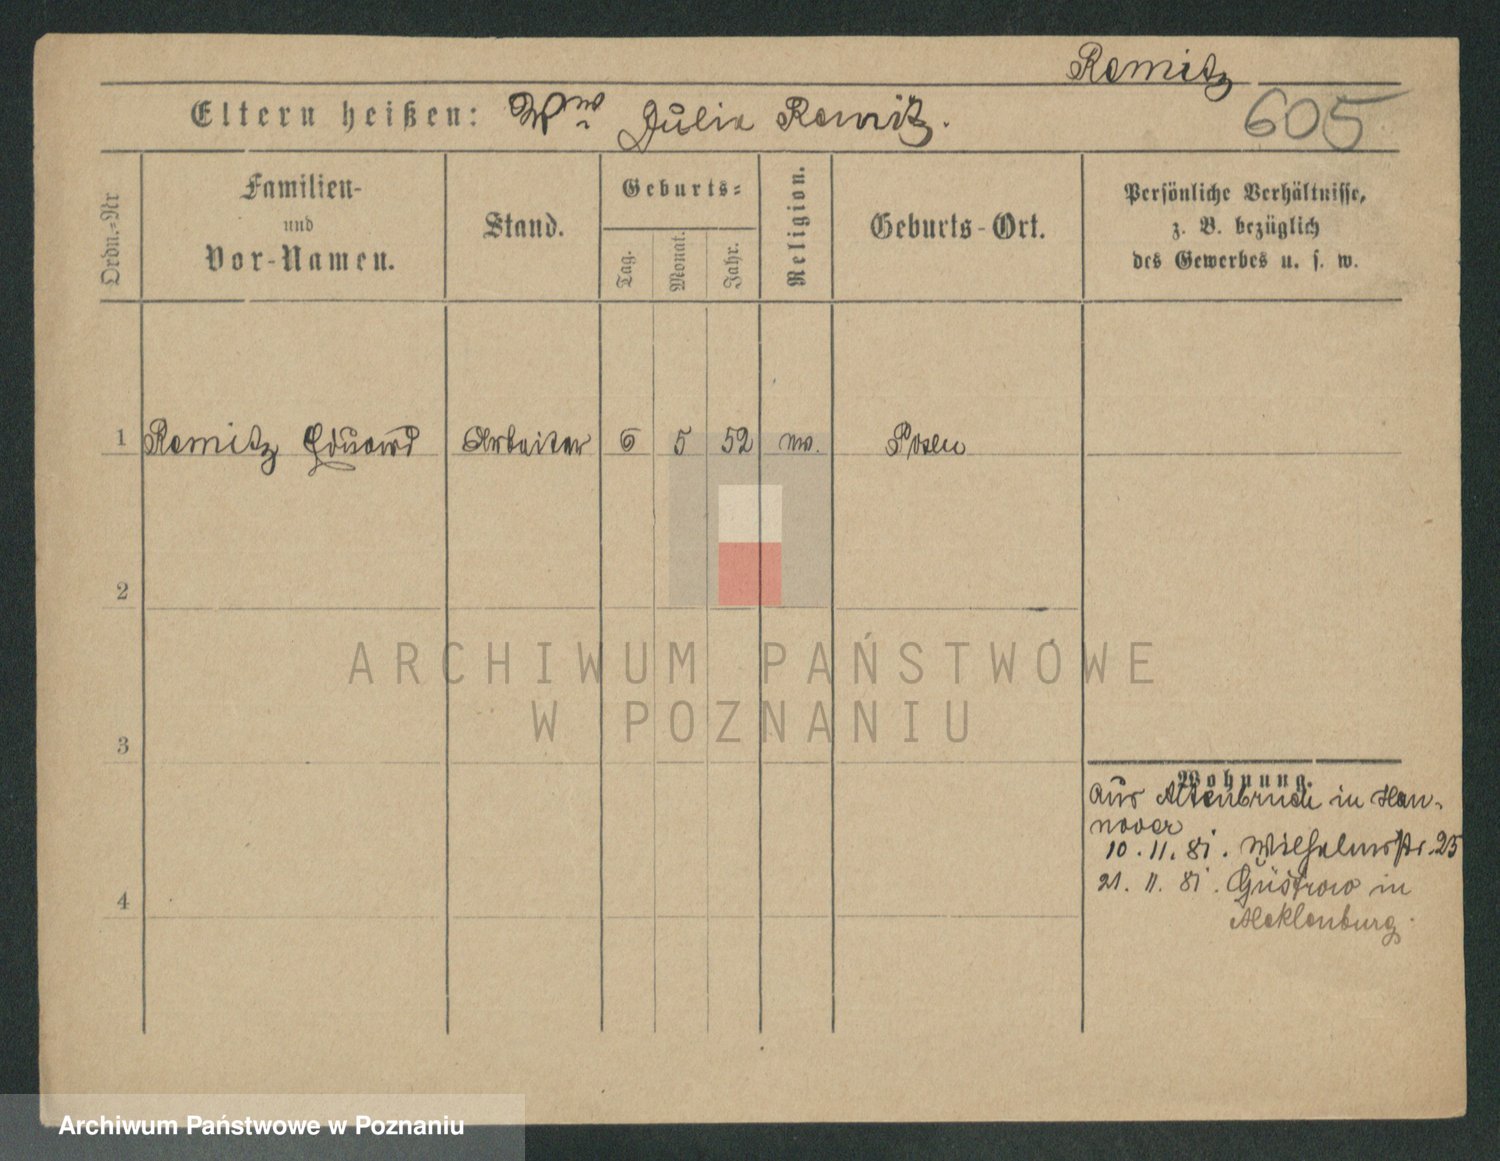 Remitz
Eltern heißen: Ww. Julia Remitz.
605
Ordn.-Nr
Familien-
und
Vor-Namen.
Stand.
Geburts-
Tag.
Monat.
Jahr.
Religion.
Geburts-Ort.
Persönliche Verhältnisse,
z. B. bezüglich
des Gewerbes u. s. w.
1 Remitz Eduard Arbeiter 6 5 52 Posen
2
ARCHIWUM PAŃSTWOWE
W POZNANIU
3
Wohnung.
Aus Altenbruch in Han-
nover
10. 11. 81. Wilhelmstr. 25
21. 11. 81. Güstrow in
Meklenburg.
4
Archiwum Państwowe w Poznaniu